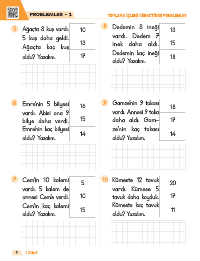 PROBLEMLER - 1
TOPLAMA İŞLEMİ GEREKTİREN PROBLEMLER
Ağaçta 8 kuş vardı.
5 kuş daha geldi.
Ağaçta kaç kuş
oldu? Yazalım.
10
13
17
Dedemin 8 ineği
vardı. Dedem 7
inek daha aldı.
Dedemin kaç ineği
oldu? Yazalım.
13
15
18
Emre'nin 5 bilyesi
vardı. Abisi ona 9
bilye daha verdi.
Emre'nin kaç bilyesi
oldu? Yazalım.
16
15
14
9 tokası
vardı. Annesi 9 toka
daha aldı.
kaç tokası
oldu? Yazalım.
18
17
14
Cem'in 10 kalemi
vardı. 5 kalem de
annesi Cem'e verdi.
Cem'in kaç kalemi
oldu? Yazalım.
5
10
15
Kümeste 12 tavuk
vardı. Kümese 5
tavuk daha koyduk.
Kümeste kaç tavuk
oldu? Yazalım.
20
17
11